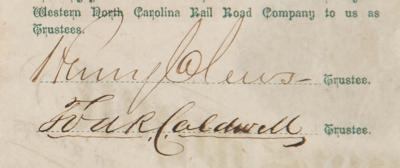 Western North Carolina Rail Road Company to us as
Trustees.
Henry Clews Trustee.
Tod R. Caldwell Trustee.